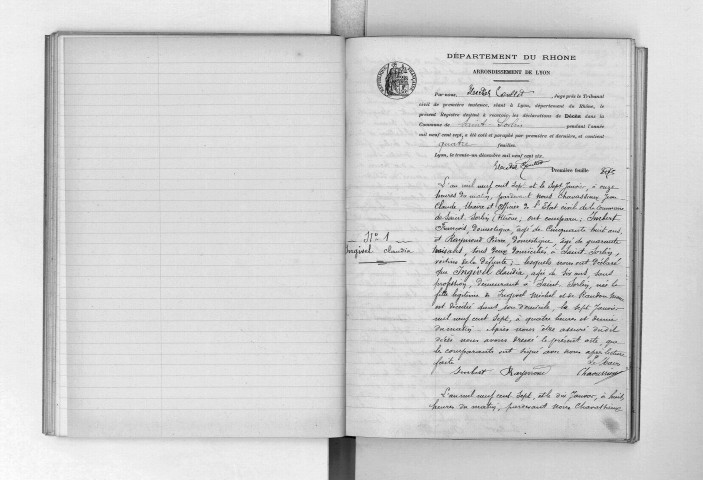 DÉPARTEMENT DU RHÔNE
ARRONDISSEMENT DE LYON
Par nous, Juge près le Tribunal
civil de première instance, séant à Lyon, département du Rhône, le
présent Registre destiné à recevoir les déclarations de Décès dans la
Commune de Saint-Sorlin pendant l'année
mil neuf cent sept, a été coté et paraphé par première et dernière, et contient
quatre feuilles.
Lyon, le trente-un décembre mil neuf cent six.
Première feuille
L'an mil neuf cent sept et le sept Janvier, à onze
heures du matin, pardevant nous Chavassieux Jean
Claude, Maire et officier de l'Etat civil de la Commune
de Saint Sorlin (Rhône), ont comparu: Imbert
François, domestique, agé de Cinquante huit ans,
et Raymond Pierre domestique, agé de quarante
ans, tous deux domiciliés à Saint Sorlin,
voisins de la défunte; lesquels nous ont déclaré
N° 1
Ingivel Claudia
que Ingivel Claudia, agée de six ans, sans
profession, demeurant à Saint-Sorlin, née
fille légitime de Ingivel Michel et de
est décédée dans son domicile, le sept Janvier
mil neuf cent sept, à quatre heures et demie
du matin. Après nous être assuré dudit
décès nous avons dressé le présent acte, que
les comparants ont signé avec nous après lecture
faite. Le Maire
Imbert Raymond Chavassieux
L'an mil neuf cent sept, et le dix Janvier, à huit
heures du matin, pardevant nous Chavassieux